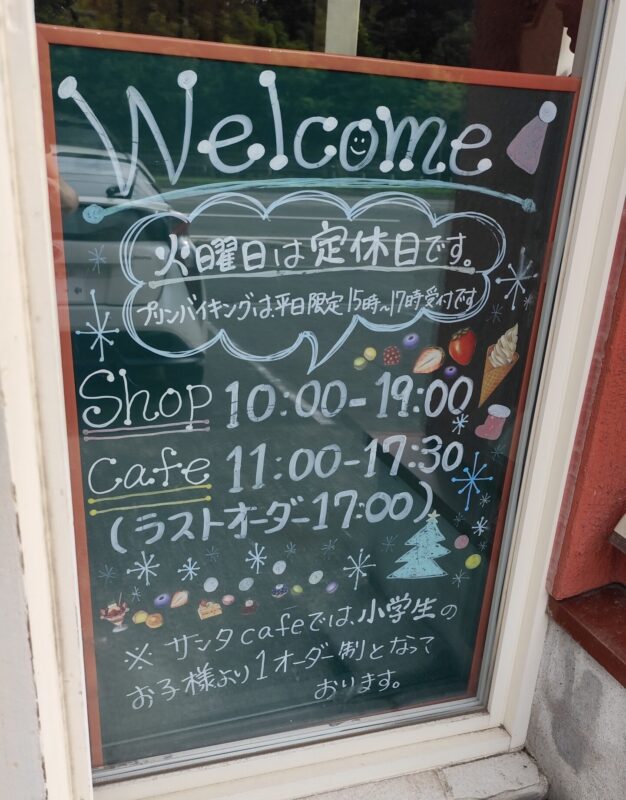 Welcome
火曜日は定休日です。
プリンバイキングは、平日限定15時〜17時受付です
Shop 10:00-19:00
cafe 11:00-17:30
(ラストオーダー17:00)
※ サンタcafeでは、小学生の
お子様より1オーダー制となって
おります。